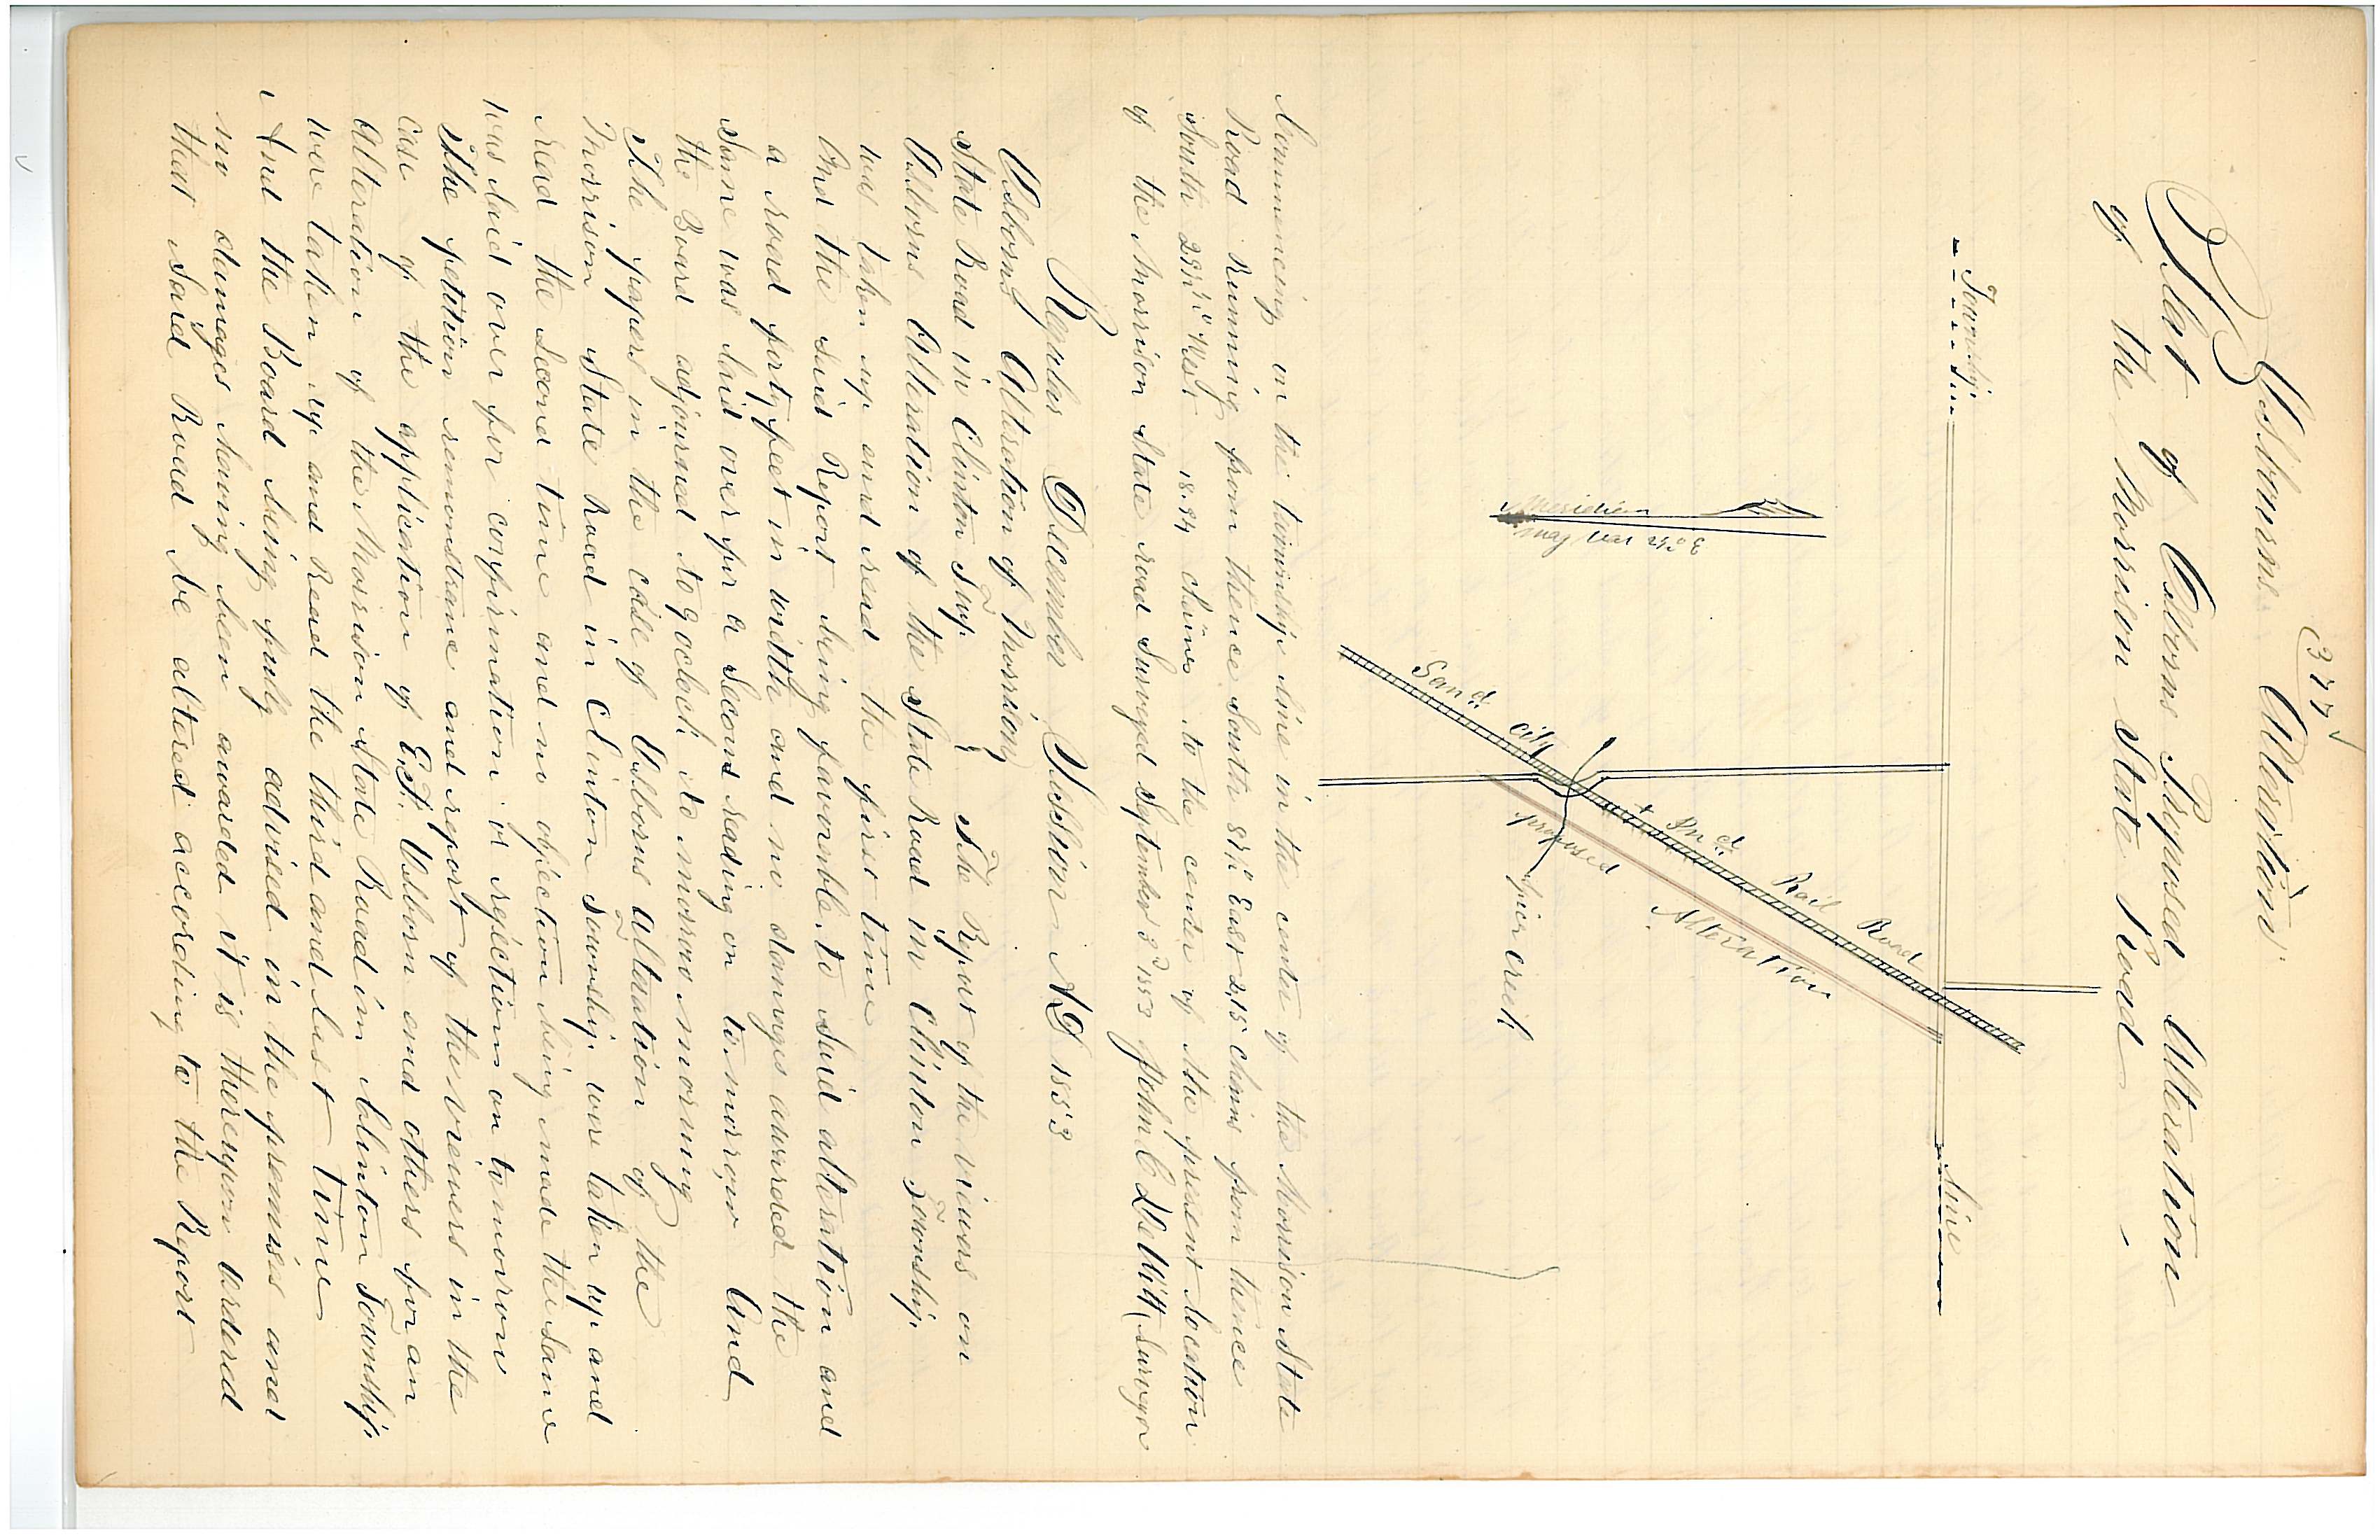 377
Osborns Alteration.
Plat of Osborns Proposed Alteration
of the Morrison State Road
Township Line
Line
Meridian
Mag Var
Sand
City
& Ind
Rail Road
proposed
Alteration
creek
Commencing on the township line in the center of the Morrison State
Road Running from thence South East 2,15 chains from thence
South West 18.94 chains to the center of the present location
of the Morrison State road Surveyed September 3d 1853 John C DeWitt Surveyor
Regular December Session AD 1853
Osborns Alteration of Morrison
State Road in Clinton Twp. The Report of the viewers on
Osborns Alteration of the State Road in Clinton Township
was taken up and read the first time
And the said Report being favorable to said alteration and
a road forty feet in width and no damages awarded the
Same was laid over for a Second reading on to morrow And
the Board adjourned to 9 oclock to morrow morning
The papers in the case of Osborns alteration of the
Morrison State Road in Clinton Township were taken up and
read the Second time and no objection being made the Same
was laid over for confirmation or rejection on to morrow
The petition remonstrance and report of the viewers in the
case of the application of E.F. Osborn and others for an
alteration of the Morrison State Road in Clinton Township
were taken up and Read the third and last time
And the Board being fully advised in the premises and
no damages having been awarded it is thereupon ordered
that Said Road be altered according to the Report